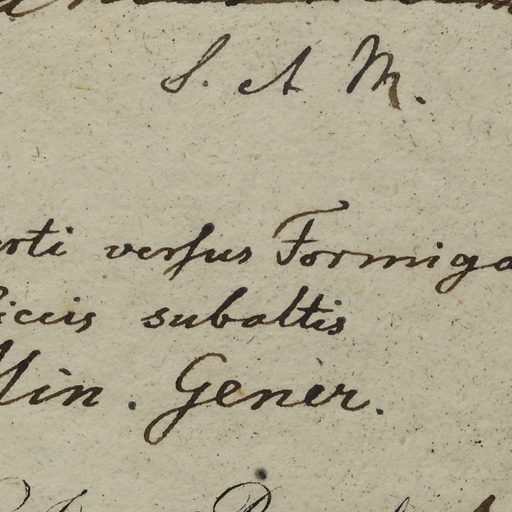 S. et M.
rti versus Formiga
iccis subaltis
Min. Gener.